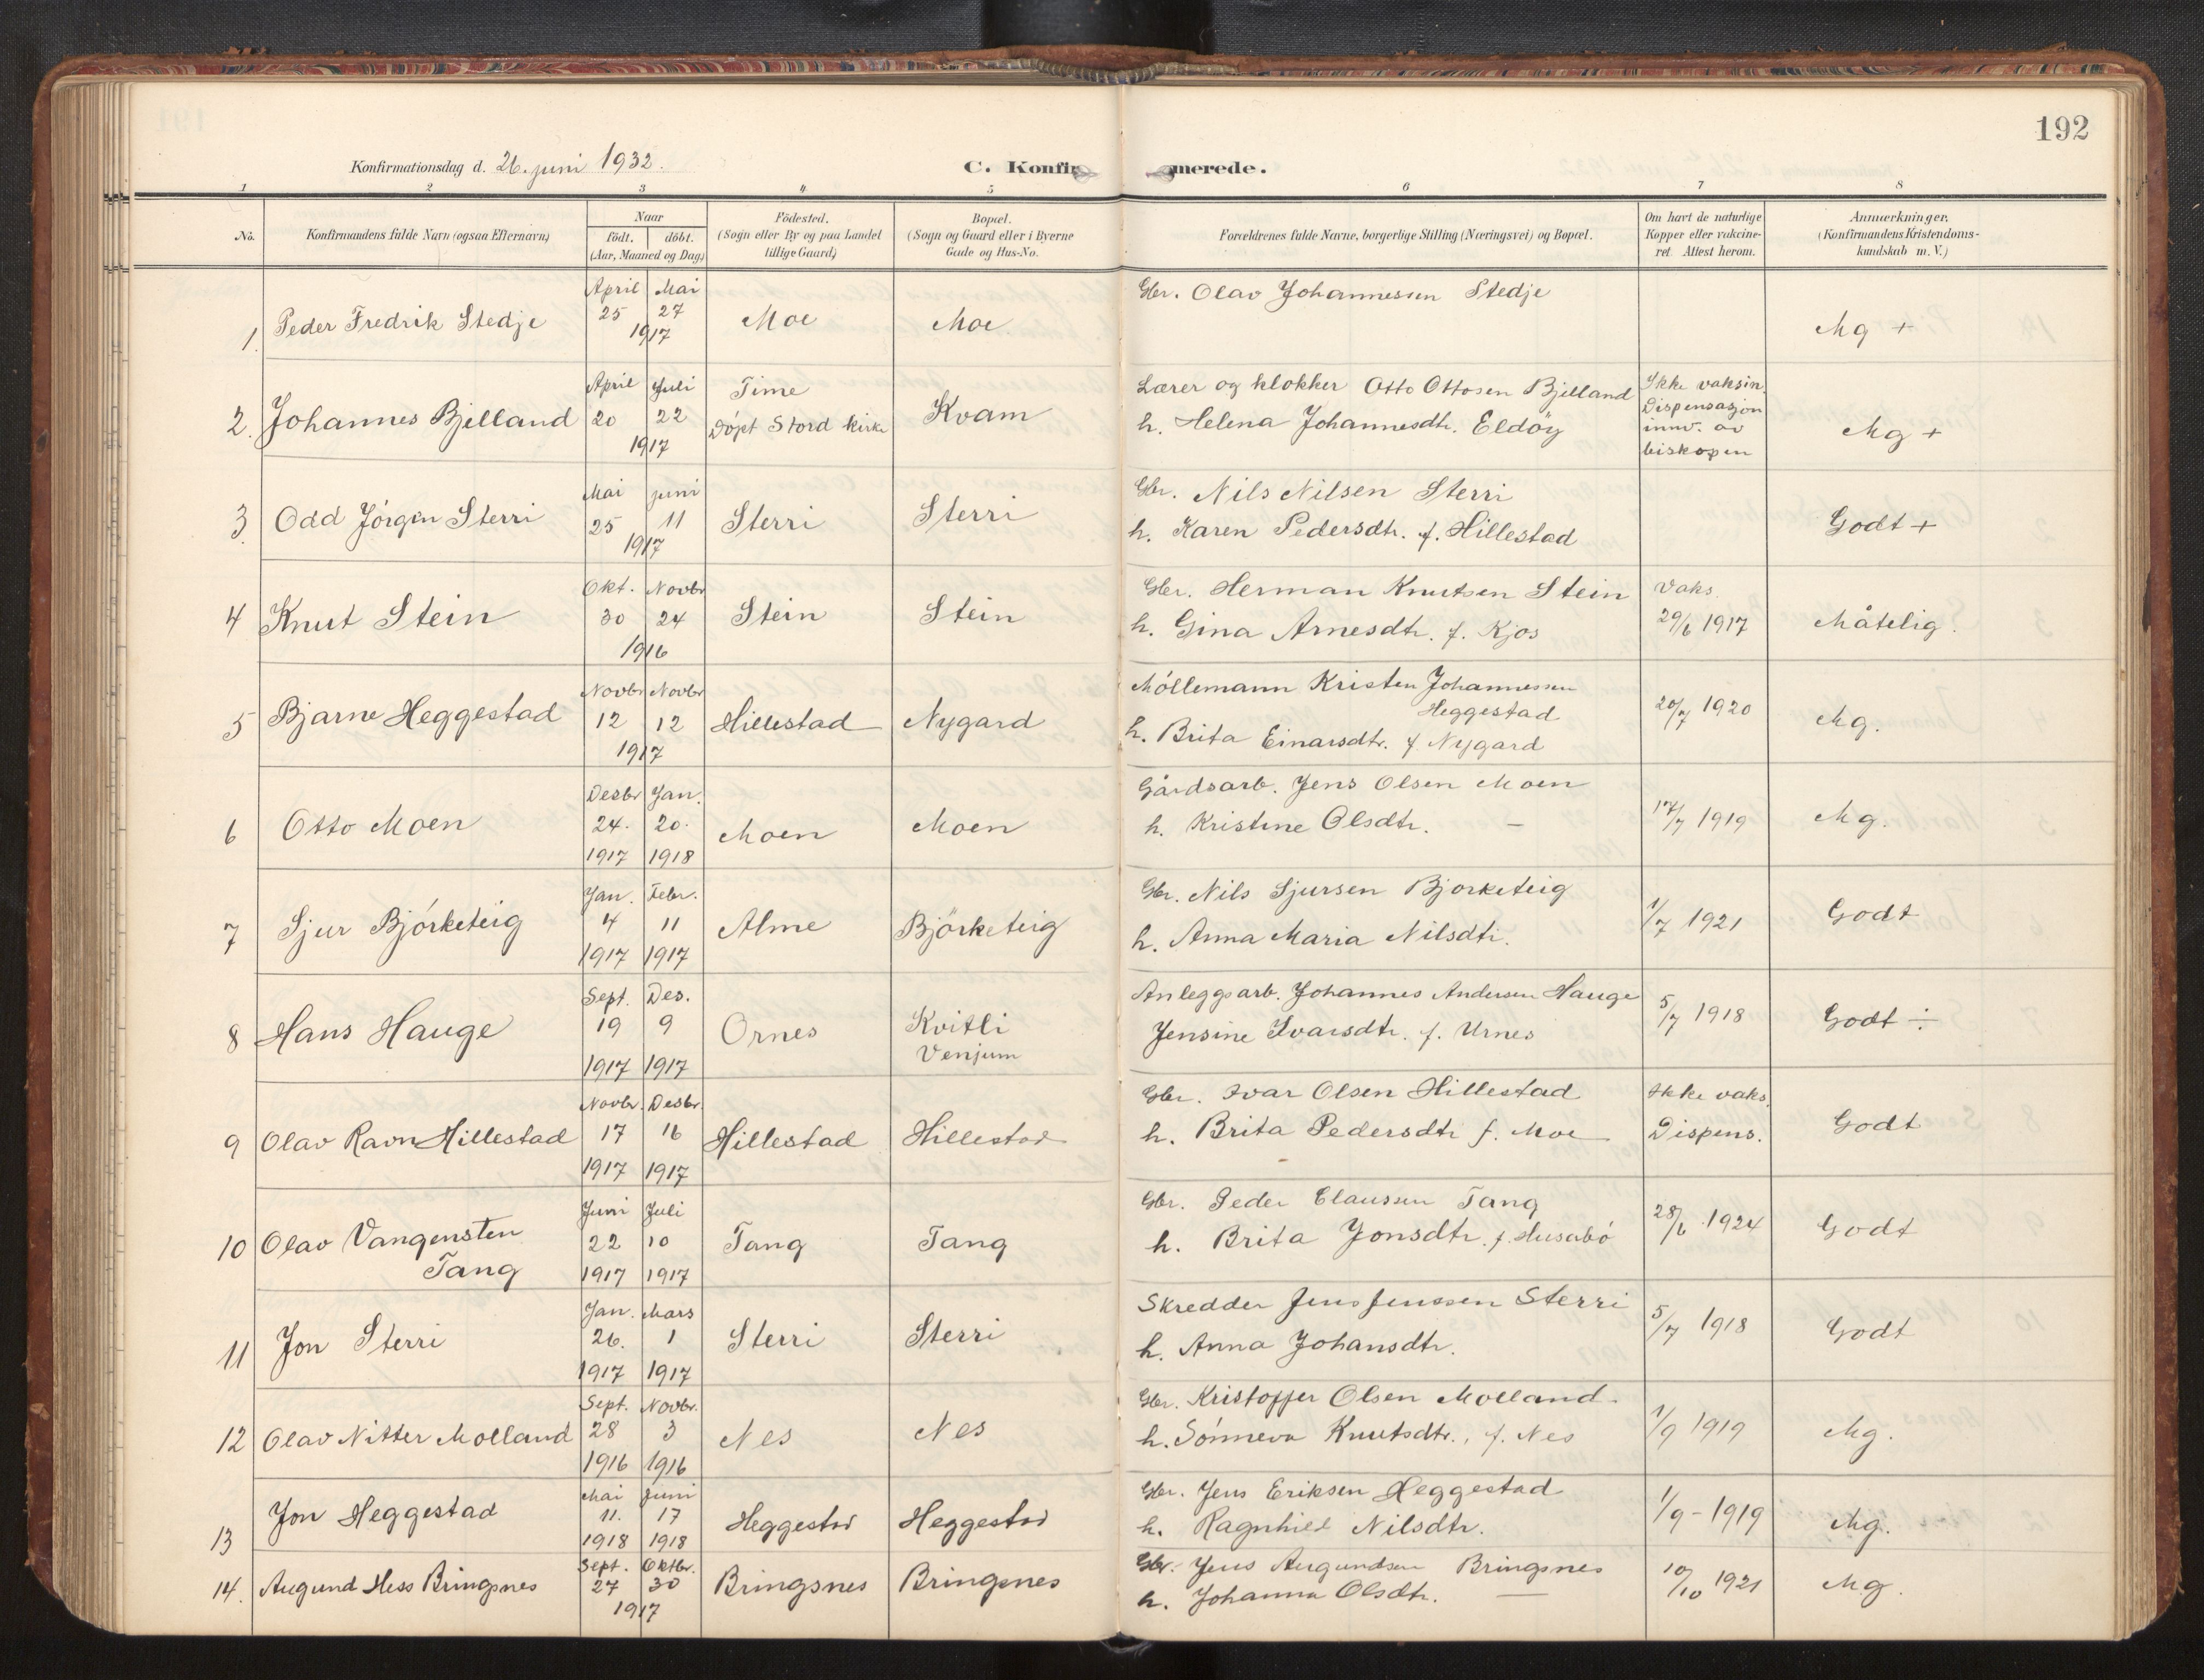 192
Konfirmationsdag d. 26. juni 1932.
C. Konfir merede.
1 2 3 4 5 6 7 8
No.
Konfirmandens fulde Navn (ogsaa Efternavn)
Naar
født. døbt.
(Aar, Maaned og Dag)
Födested.
(Sogn eller By og paa Landet
tillige Gaard)
Bopæl.
(Sogn og Gaard eller i Byerne
Gade og Hus-No.
Forældrenes fulde Navne, borgerlige Stilling (Næringsvei) og Bopæl.
Om havt de naturlige
Kopper eller vakcine-
ret. Attest herom.
Anmærkninger.
(Konfirmandens Kristendoms-
kundskab m. V.)
1. Peder Fredrik Stedje
April Mai
25 27
1917
Moe
Moe
Gbr. Olav Johannessen Stedje
Mg +
2. Johannes Bjelland
April Juli
20 22
1917
Time
Döpt Stord kirke
Kvam
Lærer og klokker Otto Ottosen Bjelland
h. Helena Johannesdtr. Eldöy
Ikke vaksin.
Dispensasjon
innv. av
biskopen
Mg +
3. Odd Jörgen Sterri
Mai juni
25 11
1917
Sterri
Sterri
Gbr. Nils Nilsen Sterri
h. Karen Pedersdtr. f. Hillestad
Godt +
4 Knut Stein
Okt. Novbr
30 24
1916
Stein
Stein
Gbr. Herman Knutsen Stein
h. Gina Arnesdtr. f. Kjos
Vaks.
29/6 1917
Måtelig.
5 Bjarne Heggestad
Novbr Novbr
12 12
1917
Hillestad
Nygard
Möllemann Kristen Johannessen
Heggestad
h. Brita Einarsdtr. f. Nygard
20/7 1920
Mg.
6 Otto Moen
Desbr Jan.
24. 20.
1917 1918
Moen
Moen
Gårdsarb. Jens Olsen Moen
h. Kristine Olsdtr. —
17/7 1919
Mg.
7 Sjur Björketeig
Jan. Febr.
4 11
1917 1917
Alme
Björketeig
Gbr. Nils Sjursen Bjorketeig
h. Anna Maria Nilsdtr.
1/7 1921
Godt
8 Hans Hauge
Sept. Des.
19 9
1917 1917
Ornes
Kvitli
Venjum
Anleggsarb. Johannes Andersen Hauge
Jensine Ivarsdtr. f. Urnes
5/7 1918
Godt ÷
9 Olav Ravn Hillestad
Novbr. Desbr.
17 16
1917 1917
Hillestad
Hillestad
Gbr. Ivar Olsen Hillestad
h. Brita Pedersdtr f. Moe
Ikke vaks.
Dispens.
Godt
10 Olav Vangensten
Tang
Juni Juli
22 10
1917 1917
Tang
Tang
Gbr. Peder Claussen Tang
h. Brita Jonsdtr. f. Husabö
28/6 1924
Godt
11 Jon Sterri
Jan. Mars
26. 1
1917 1917
Sterri
Sterri
Skredder Jens Jenssen Sterri
h. Anna Johansdtr.
5/7 1918
Godt
12 Olav Nitter Molland
Sept. Novbr.
28 3
1916 1916
Nes
Nes
Gbr. Kristoffer Olsen Molland.
h. Sönneva Knutsdtr., f. Nes
1/9 1919
Mg.
13 Jon Heggestad
Mai Juni
11. 17
1918 1918
Heggestad
Heggestad
Gbr. Jens Eriksen Heggestad
h. Ragnhild Nilsdtr.
1/9 - 1919
Mg.
14. Augund Hess Bringsnes
Sept. Oktbr.
27 30
1917
Bringsnes
Bringsnes
Gbr. Jens Augundsen Bringsnes
h. Johanna Olsdtr. —
10/10 1921
Mg.